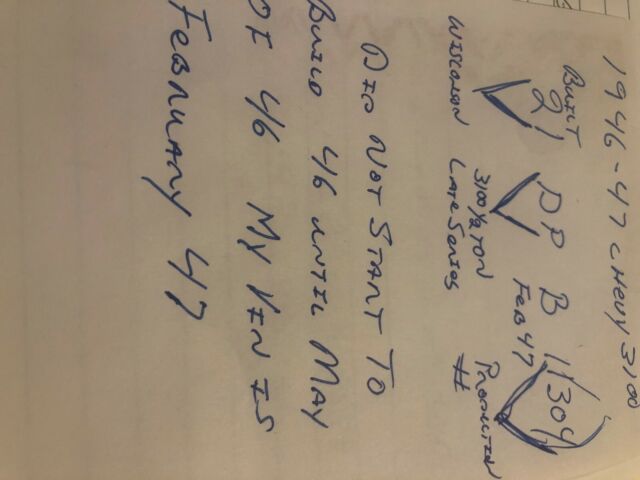 1946-47 CHEVY 3100
BUILT
2 DP B 11304
FEB 47
WISCONSIN 3100 1/2 TON PRODUCTION
LATE SERIES #
DID NOT START TO
BUILD 46 UNTIL MAY
OF 46 MY VIN IS
FEBRUARY 47